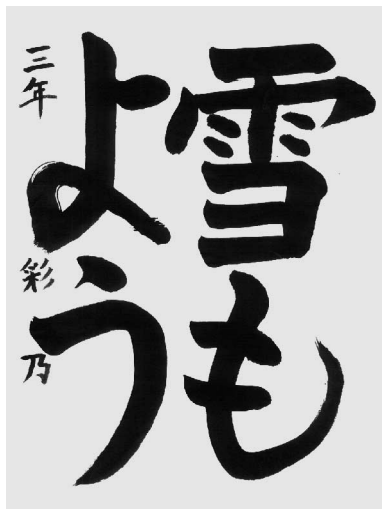 雪も
よう
三年 彩乃